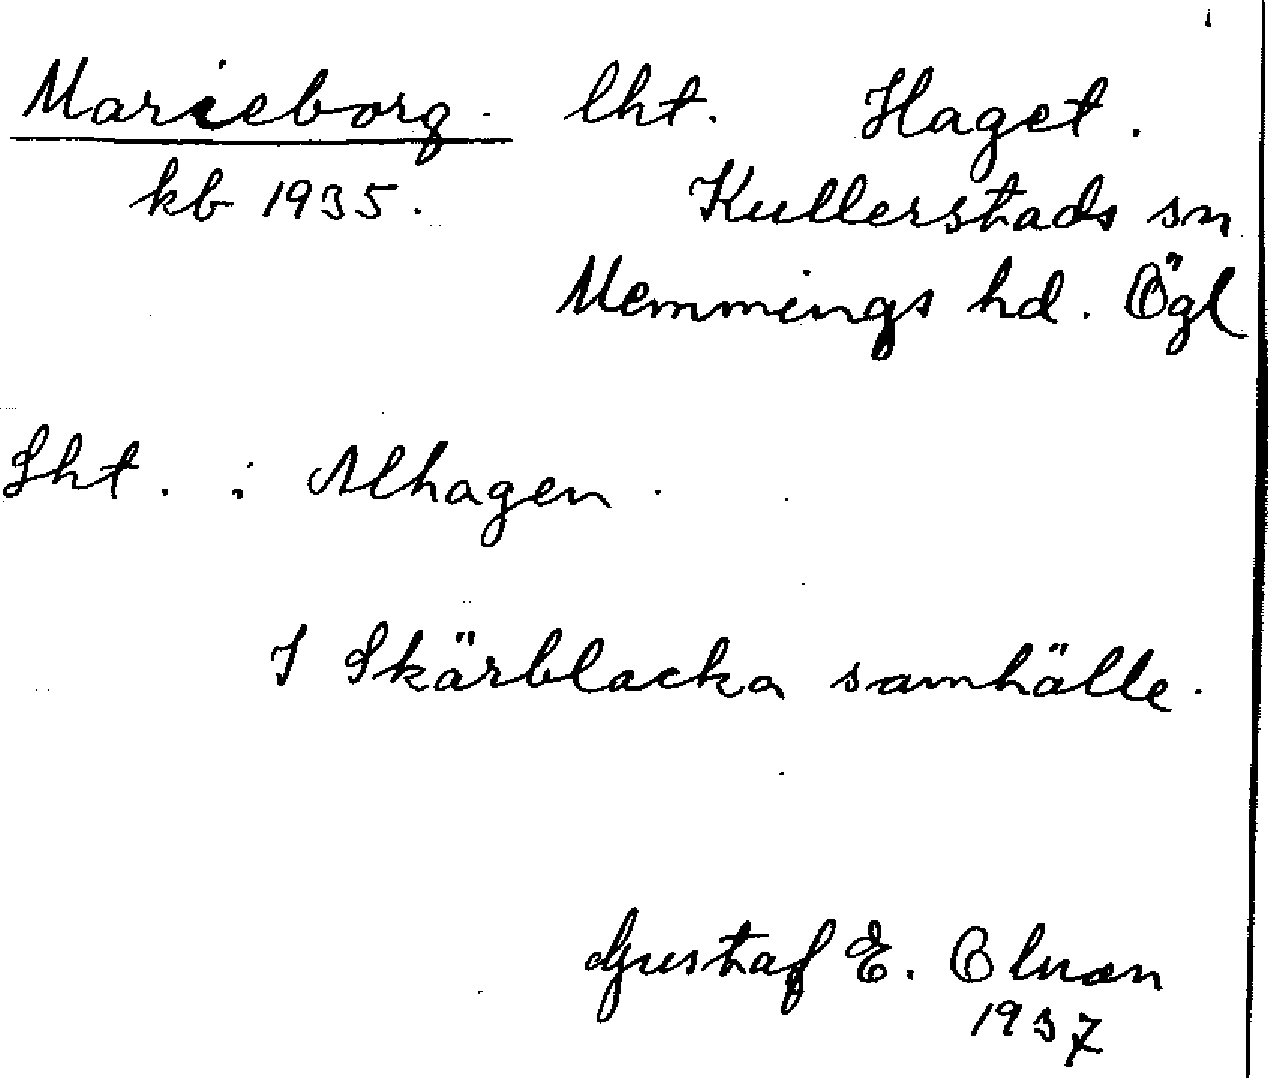 Marieborg. lht. Haget.
kb 1935. Kullerstads sn
Memmings hd. Ögl
Lht. : Alhagen.
I Skärblacka samhälle.
Gustaf E. Olson
1937